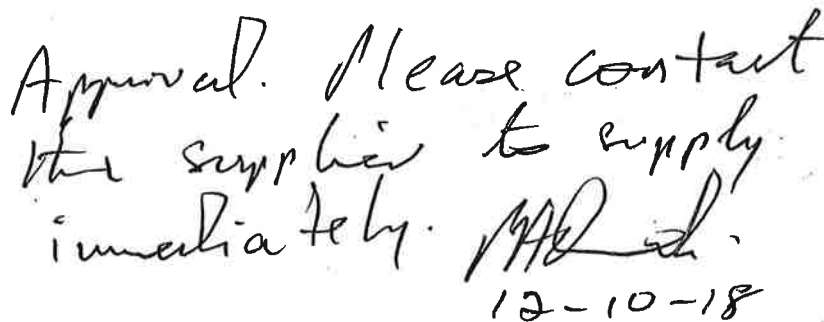 Approval. Please contact
the supplier to supply
immediately.
12-10-18